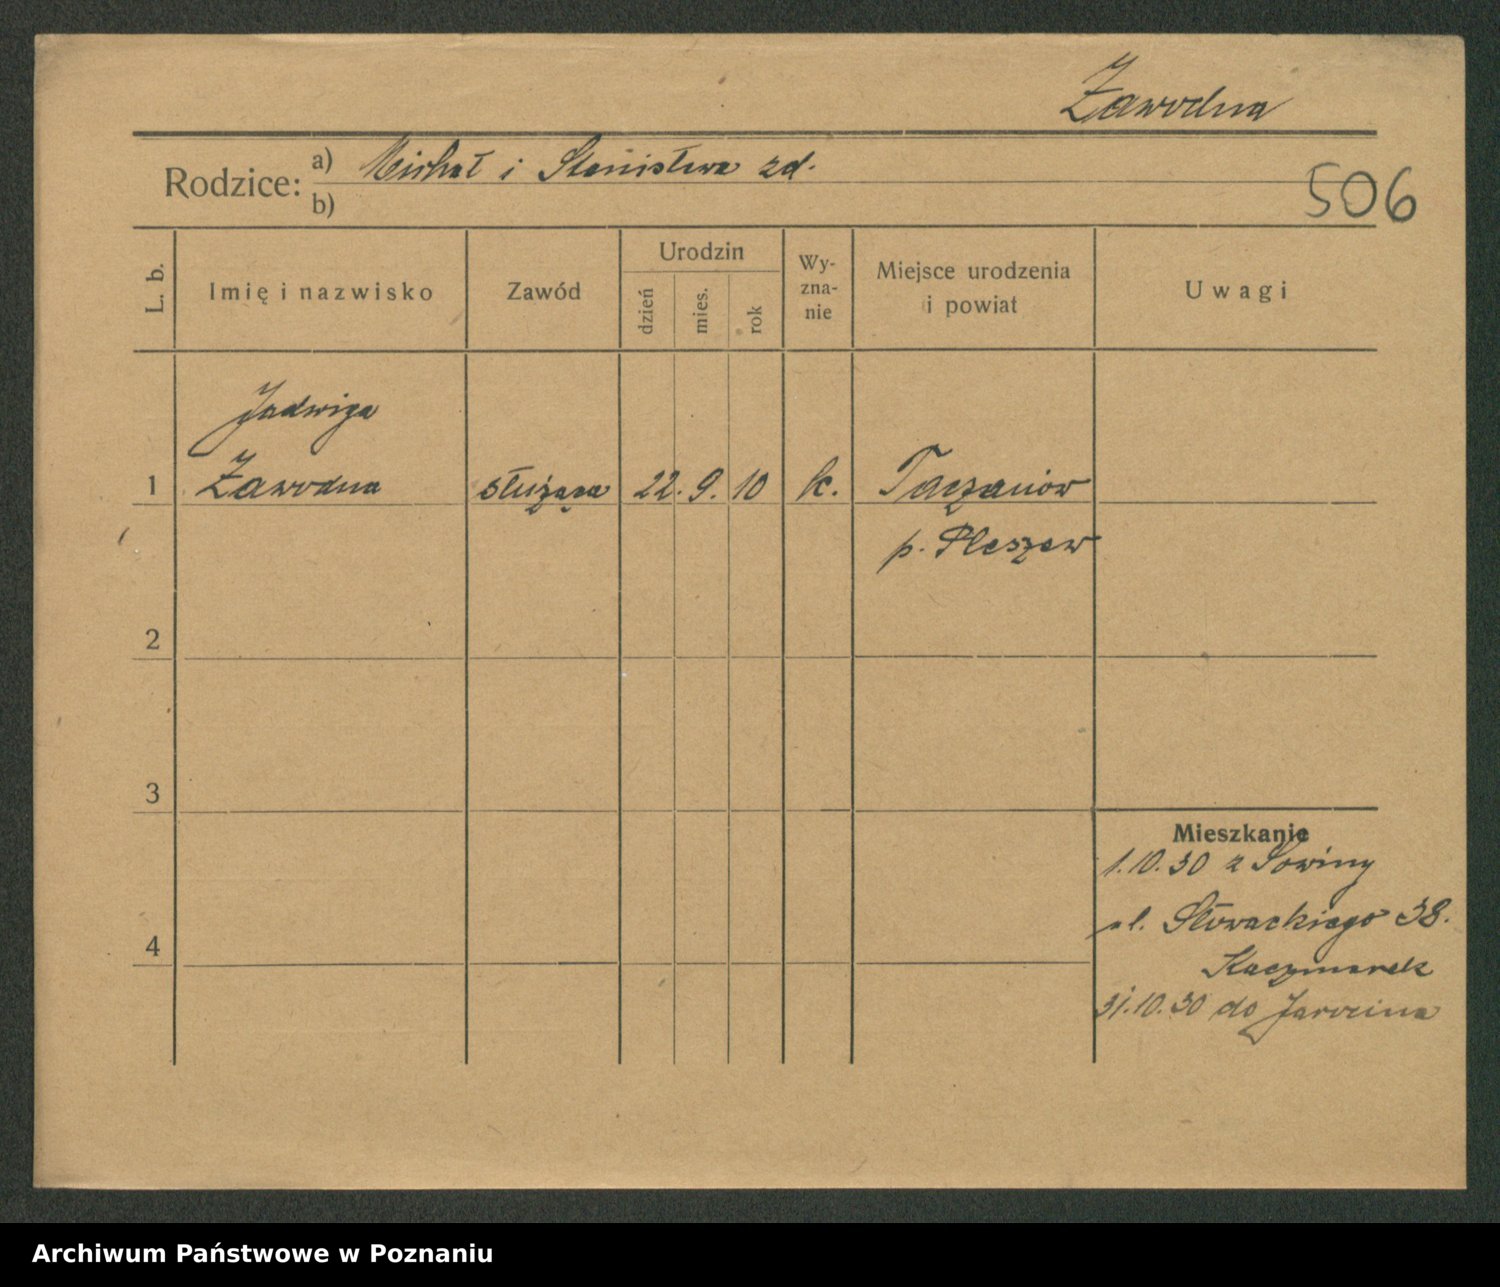 Zawodna
Rodzice: a) Michał i Stanisława zd.
b)
506
L. b.
Imię i nazwisko
Zawód
Urodzin
dzień
mies.
rok
Wy-
zna-
nie
Miejsce urodzenia
i powiat
Uwagi
Jadwiga
1 Zawodna służąca 22. 9. 10 k. Taczanów
p. Pleszew
2
3
4
Mieszkanie
1.10.30 z Sowiny
ul. Słowackiego 38.
Kaczmarek
31.10.30 do Jarocina
Archiwum Państwowe w Poznaniu